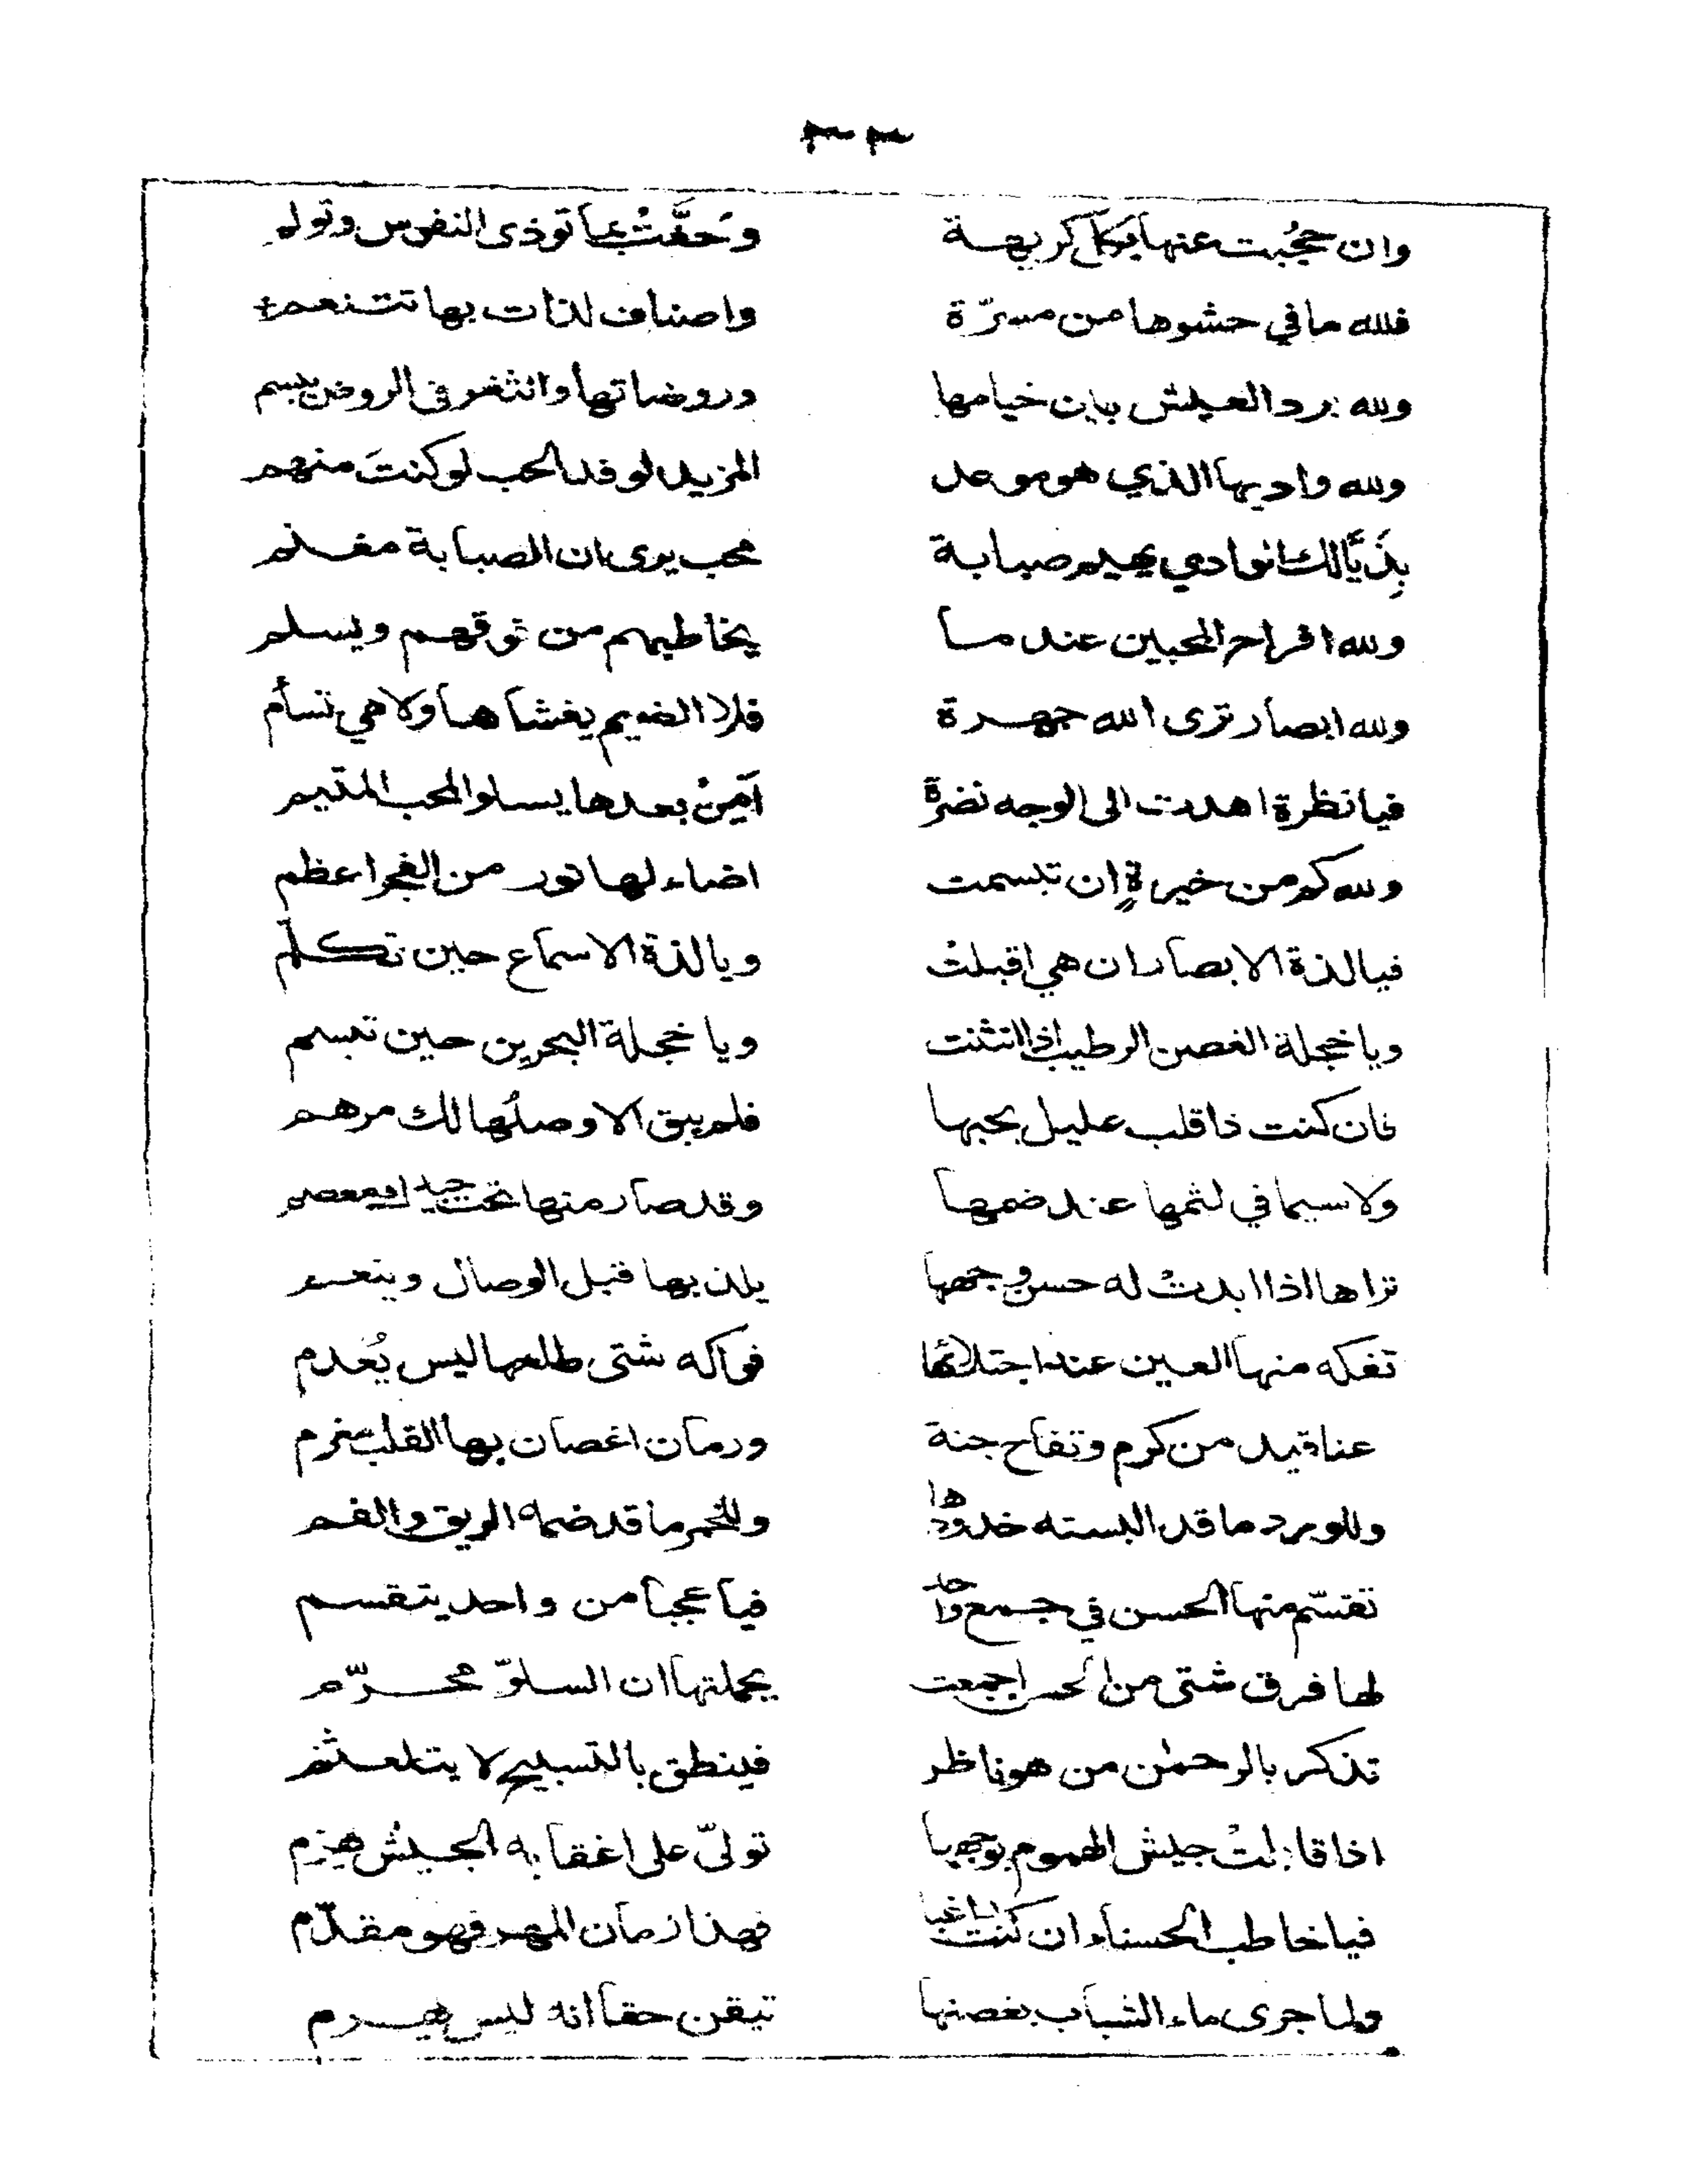 ٣٣
وان حجُبت عنها بكل كريهة وحفَّتْ بما توذى النفوس وتولم
فلله ما في حشوها من مسرّة واصناف لذات بها تتنعم
ولله برد العيش بين خيامها وروضاتها والثغر فى الروض يبسم
ولله واديها الذي هو موعد المزيد لوفد الحب لو كنتَ منهم
بِذَيَّالك الوادي يهيم صبابة محب يرى ان الصبابة مغنم
ولله افراح المحبين عند ما يخاطبهم من فوقهم ويسلم
ولله ابصار ترى الله جهرة فلا الضيم يغشاها ولا هي تسأم
فيا نظرة اهدت الى الوجه نضرة أمِنْ بعدها يسلو المحب المتيم
ولله كم من خيرةٍ ان تبسمت اضاء لها نور من الفجر اعظم
فيالذة الابصار ان هي اقبلتْ ويالذة الاسماع حين تكلم
ويا خجلة الغصن الرطيب اذا انثنت ويا خجلة البحرين حين تبسم
فان كنت ذا قلب عليل بحبها فلم يبق الا وصلُها لك مرهم
ولا سيما في لثمها عند ضمها وقد صار منها تحت جيد لك معصم
تراها اذا ابدتْ له حسن وجهها يلذ بها قبل الوصال وينعم
تفكه منها العين عند اجتلائها فواكه شتى طلعها ليس يُعدم
عناقيد من كرم وتفاح جنة ورمان اغصان بها القلب مغرم
وللورد ما قد البسته خدودها وللخمر ما قد ضمه الريق والفم
تقسّم منها الحسن في جمع واحد فيا عجبا من واحد يتقسم
لها فرق شتى من الحسن اجمعت بجملتها ان السلوّ محرّم
تذكر بالرحمٰن من هو ناظر فينطق بالتسبيح لا يتلعثم
اذا قابلتْ جيش الهموم بوجهها تولىّ على اعقابه الجيش يهزم
فيا خاطب الحسناء ان كنت راغبا فهذا زمان المهر فهو مقدّم
ولما جرى ماء الشباب بغصنها تيقن حقا انه ليس يهرم